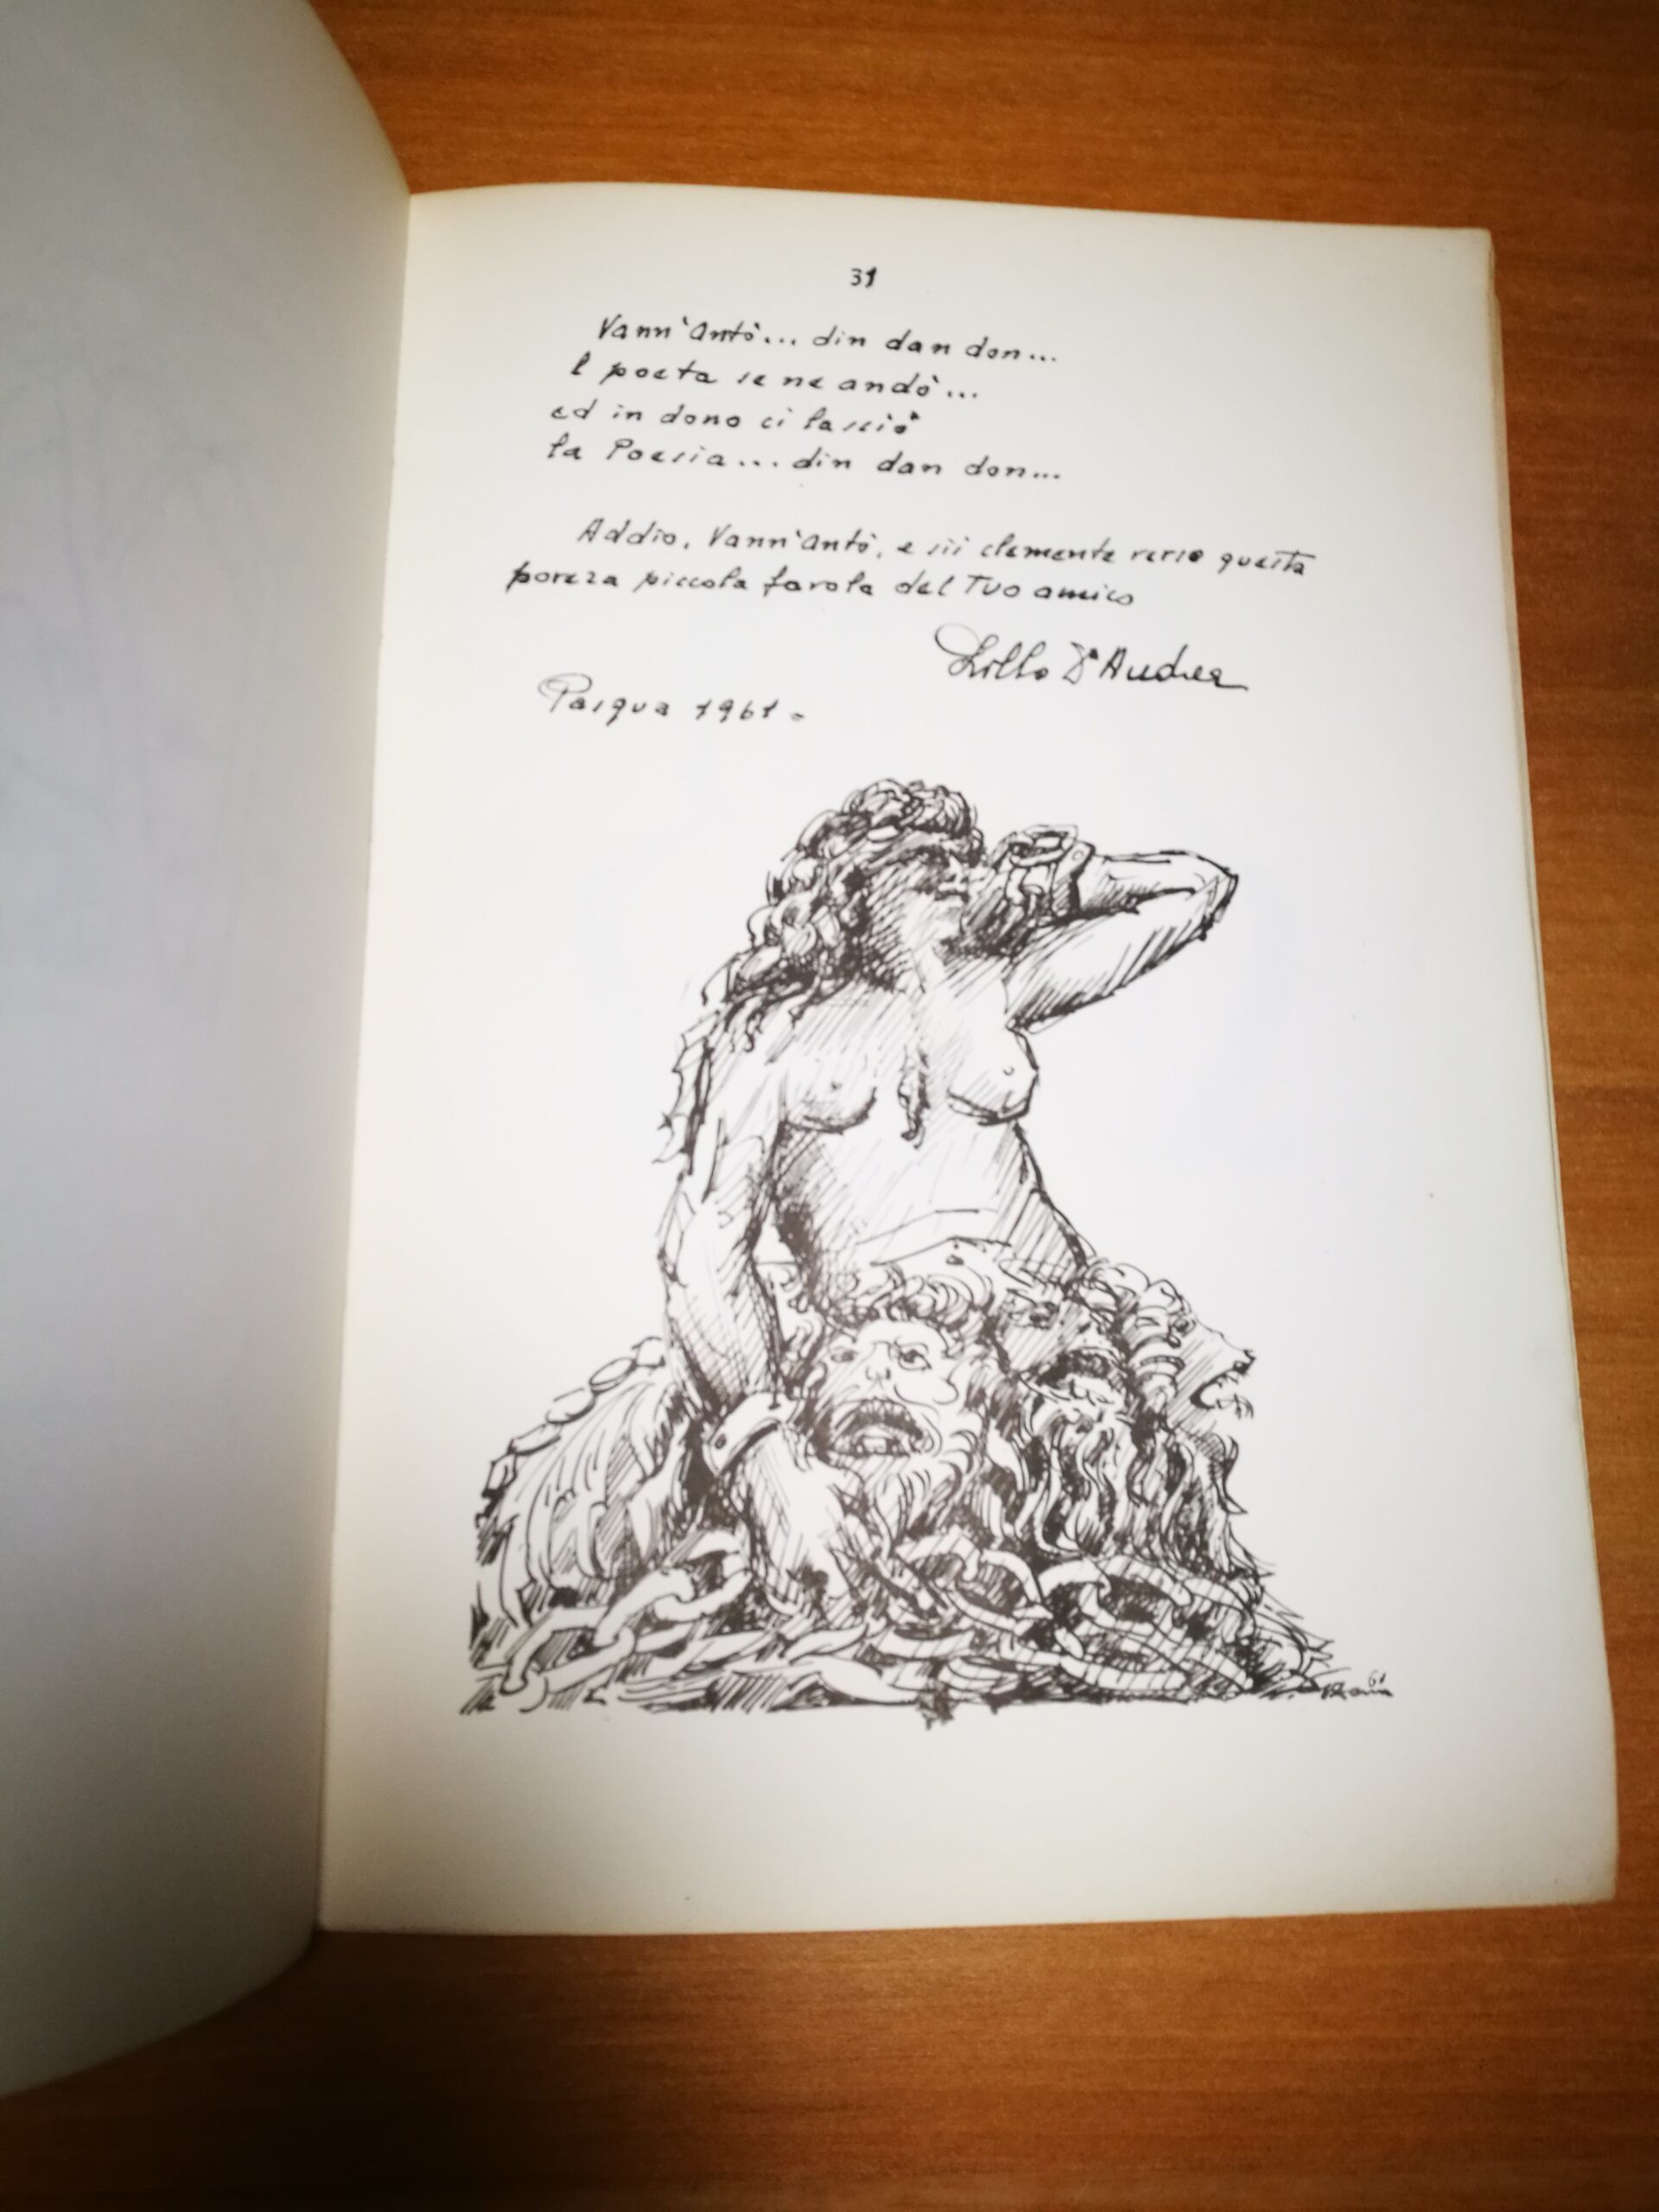 31
Vann'Antò... din dan don...
l poeta se ne andò...
ed in dono ci lasciò
la Poesia... din dan don...
Addio, Vann'Antò, e sii clemente verso questa
povera piccola favola del Tuo amico
Lillo D'Andrea
Pasqua 1961 -
61